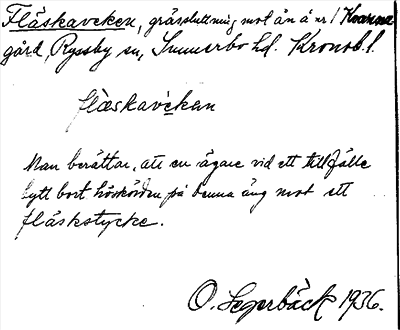 Fläskaveken, gräsluttning mot ån å nr 1 Kvarna
gård, Ryssby sn, Sunnerbo hd. Kronob. l.
flæskavèkan
Man berättar, att en ägare vid ett tillfälle
bytt bort höskörden på denna äng mot ett
fläskstycke.
O. Segerbäck 1936.